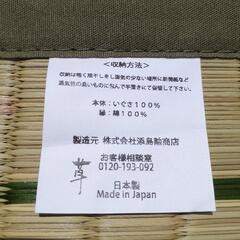 <収納方法>
収納は軽く陰干しをし湿気の少ない場所に新聞紙など
通気性の良いものに包んで平置きにて保管して下さい。
本体：いぐさ100%
縁：綿100%
製造元 株式会社添島勲商店
お客様相談室
0120-193-092
日本製
Made in Japan